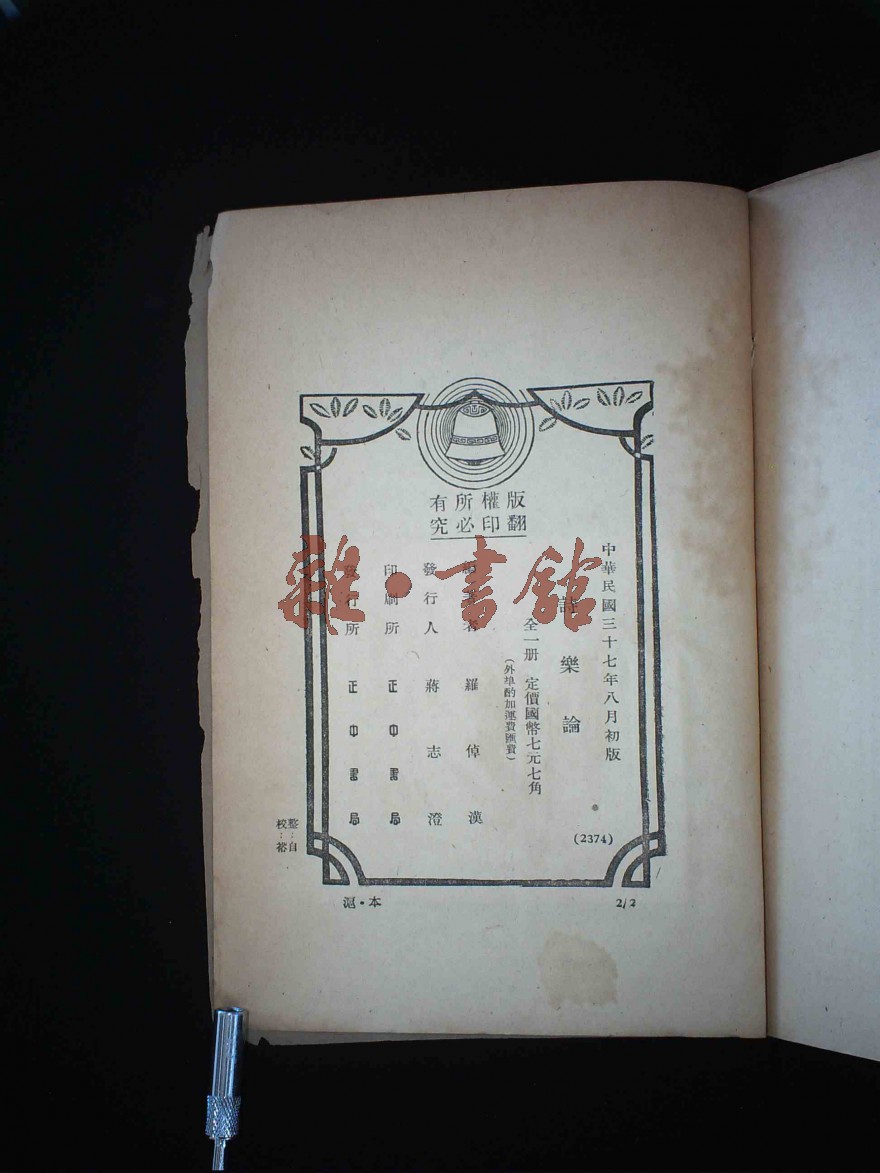 版權所有
翻印必究
中華民國三十七年八月初版
詩樂論
全一册 定價國幣七元七角
(外埠酌加運費匯費)
者 羅倬漢
發行人 蔣志澄
印刷所 正中書局
發行所 正中書局
(2374)
整：自
校：裕
滬・本
2/2
雜・書館